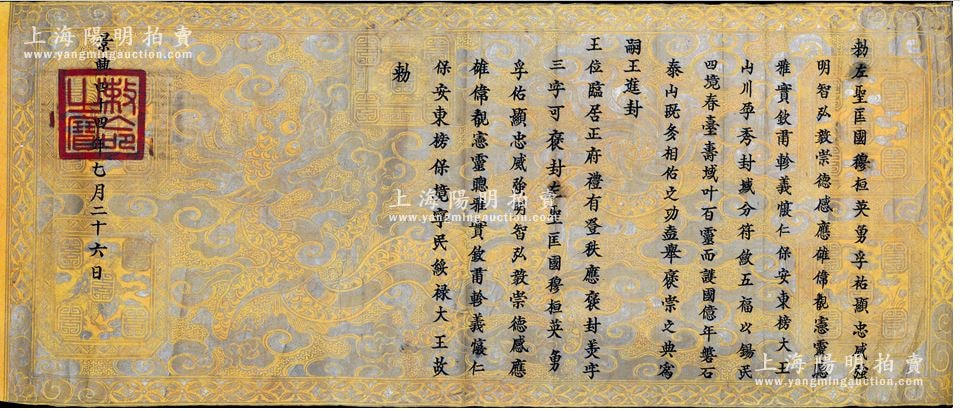 勑左聖匡國穆桓英勇孚祐顯忠威強
明智弘毅崇德感應雄偉憲靈
雅實敘甫軫義懷仁保安東榜大王
山川孕秀封域分符斂五福以錫民
四境春臺壽域叶百靈而護國億年磐石
泰山既多相佑之功盍舉褒崇之典為
嗣王進封
王位臨居正府禮有登秩應褒封美字
三字可褒封左聖匡國穆桓英勇
孚佑顯忠威強明智弘毅崇德感應
雄偉憲靈聰雅實敘甫軫義懷仁
保安東榜保境寧民綏祿大王故
勑
景興四十四年七月二十六日
敕命之寶
上海陽明拍賣
www.yangmingauction.com
上海陽明拍賣
www.yangmingauction.com
上海陽明拍賣
www.yangmingauction.com
上海陽明拍賣
www.yangmingauction.com
上海陽明拍賣
www.yangmingauction.com